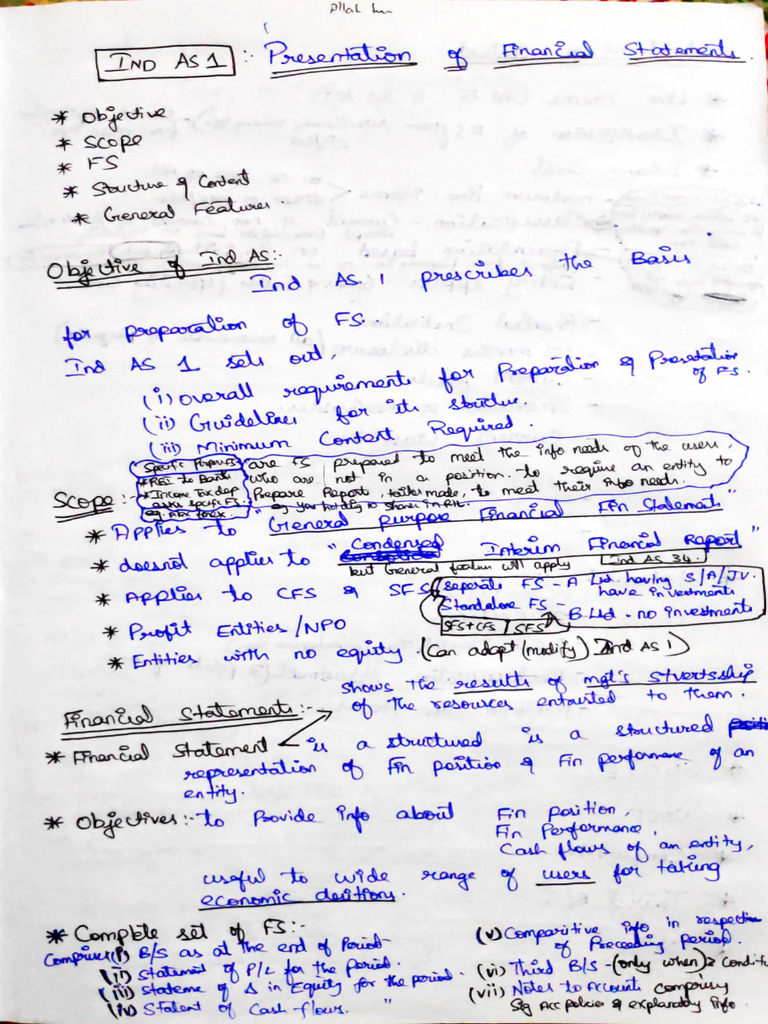 IND AS 1 :- Presentation of Financial Statements.
* Objective
* Scope
* FS
* Structure & Content
* General Features
Objective of Ind AS:-
Ind AS 1 prescribes the Basis
for preparation of FS.
Ind AS 1 sets out,
(i) overall requirements for Preparation & Presetation of FS.
(ii) Guidelines for its structure.
(iii) Minimum Content Required.
are FS prepared to meet the info needs of the users,
who are not in a position to require an entity to
Prepare Report, tailor made, to meet their info needs.
Specific Purpose FS
* REs to Bank
* Income Tax dep
Scope:-
* Applies to "General purpose Financial Fin Statemat"
* doesnot applies to "Condensed Interim Financial Report"
but General featurs will apply Ind AS 34
* Applies to CFS & SFS
Seperate FS - A Ltd. having S/A/JV.
have investments
Standalone FS - B Ltd - no investments
SFS + CFS / SFS
* Profit Entities/NPO
* Entities with no equity. (Can adopt (modify) Ind AS 1)
Financial Statements:-
shows the results of mgt's
of the resources entrusted to them.
* Financial Statement is a structured is a structured
representation of Fin position & Fin performance of an
entity.
* Objectives:- to Provide info about Fin position,
Fin Performance,
Cash flows of an entity,
useful to wide range of users for taking
economic decitions.
* Complete set of FS:-
Comprises (i) B/S as at the end of Period
(ii) Statement of P/L for the period.
(iii) Stateme of Δ in Equity for the period.
(iv) Statent of Cash-flows. "
(v) Comparitive info in respect
of Preceeding period.
(vi) Third B/S - (only when) 2 Condit
(vii) Notes to Accounts Comprising
Sig Acc policies & explanatory info.